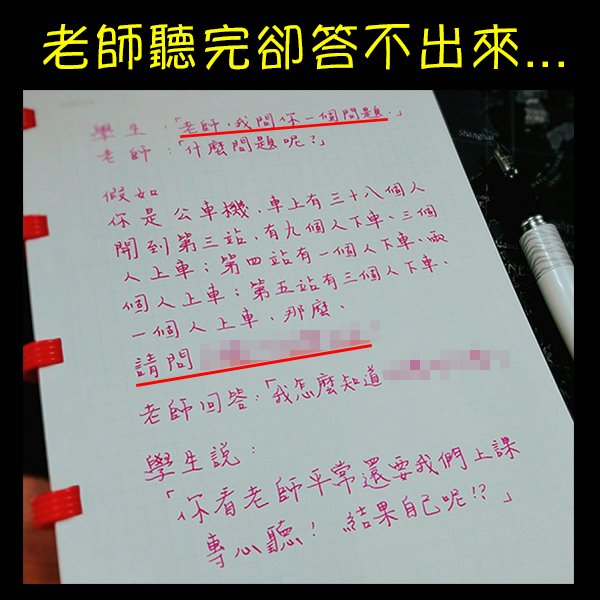 老師聽完卻答不出來...
學生:「老師,我問你一個問題。」
老師:「什麼問題呢?」
假如
你是公車機,車上有三十八個人
開到第三站,有九個人下車、三個
人上車;第四站有一個人下車、兩
個人上車;第五站有三個人下車、
一個人上車、那麼、
請問
老師回答:「我怎麼知道
學生說:
「你看老師平常還要我們上課
專心聽!結果自己呢!?」
Shanghai